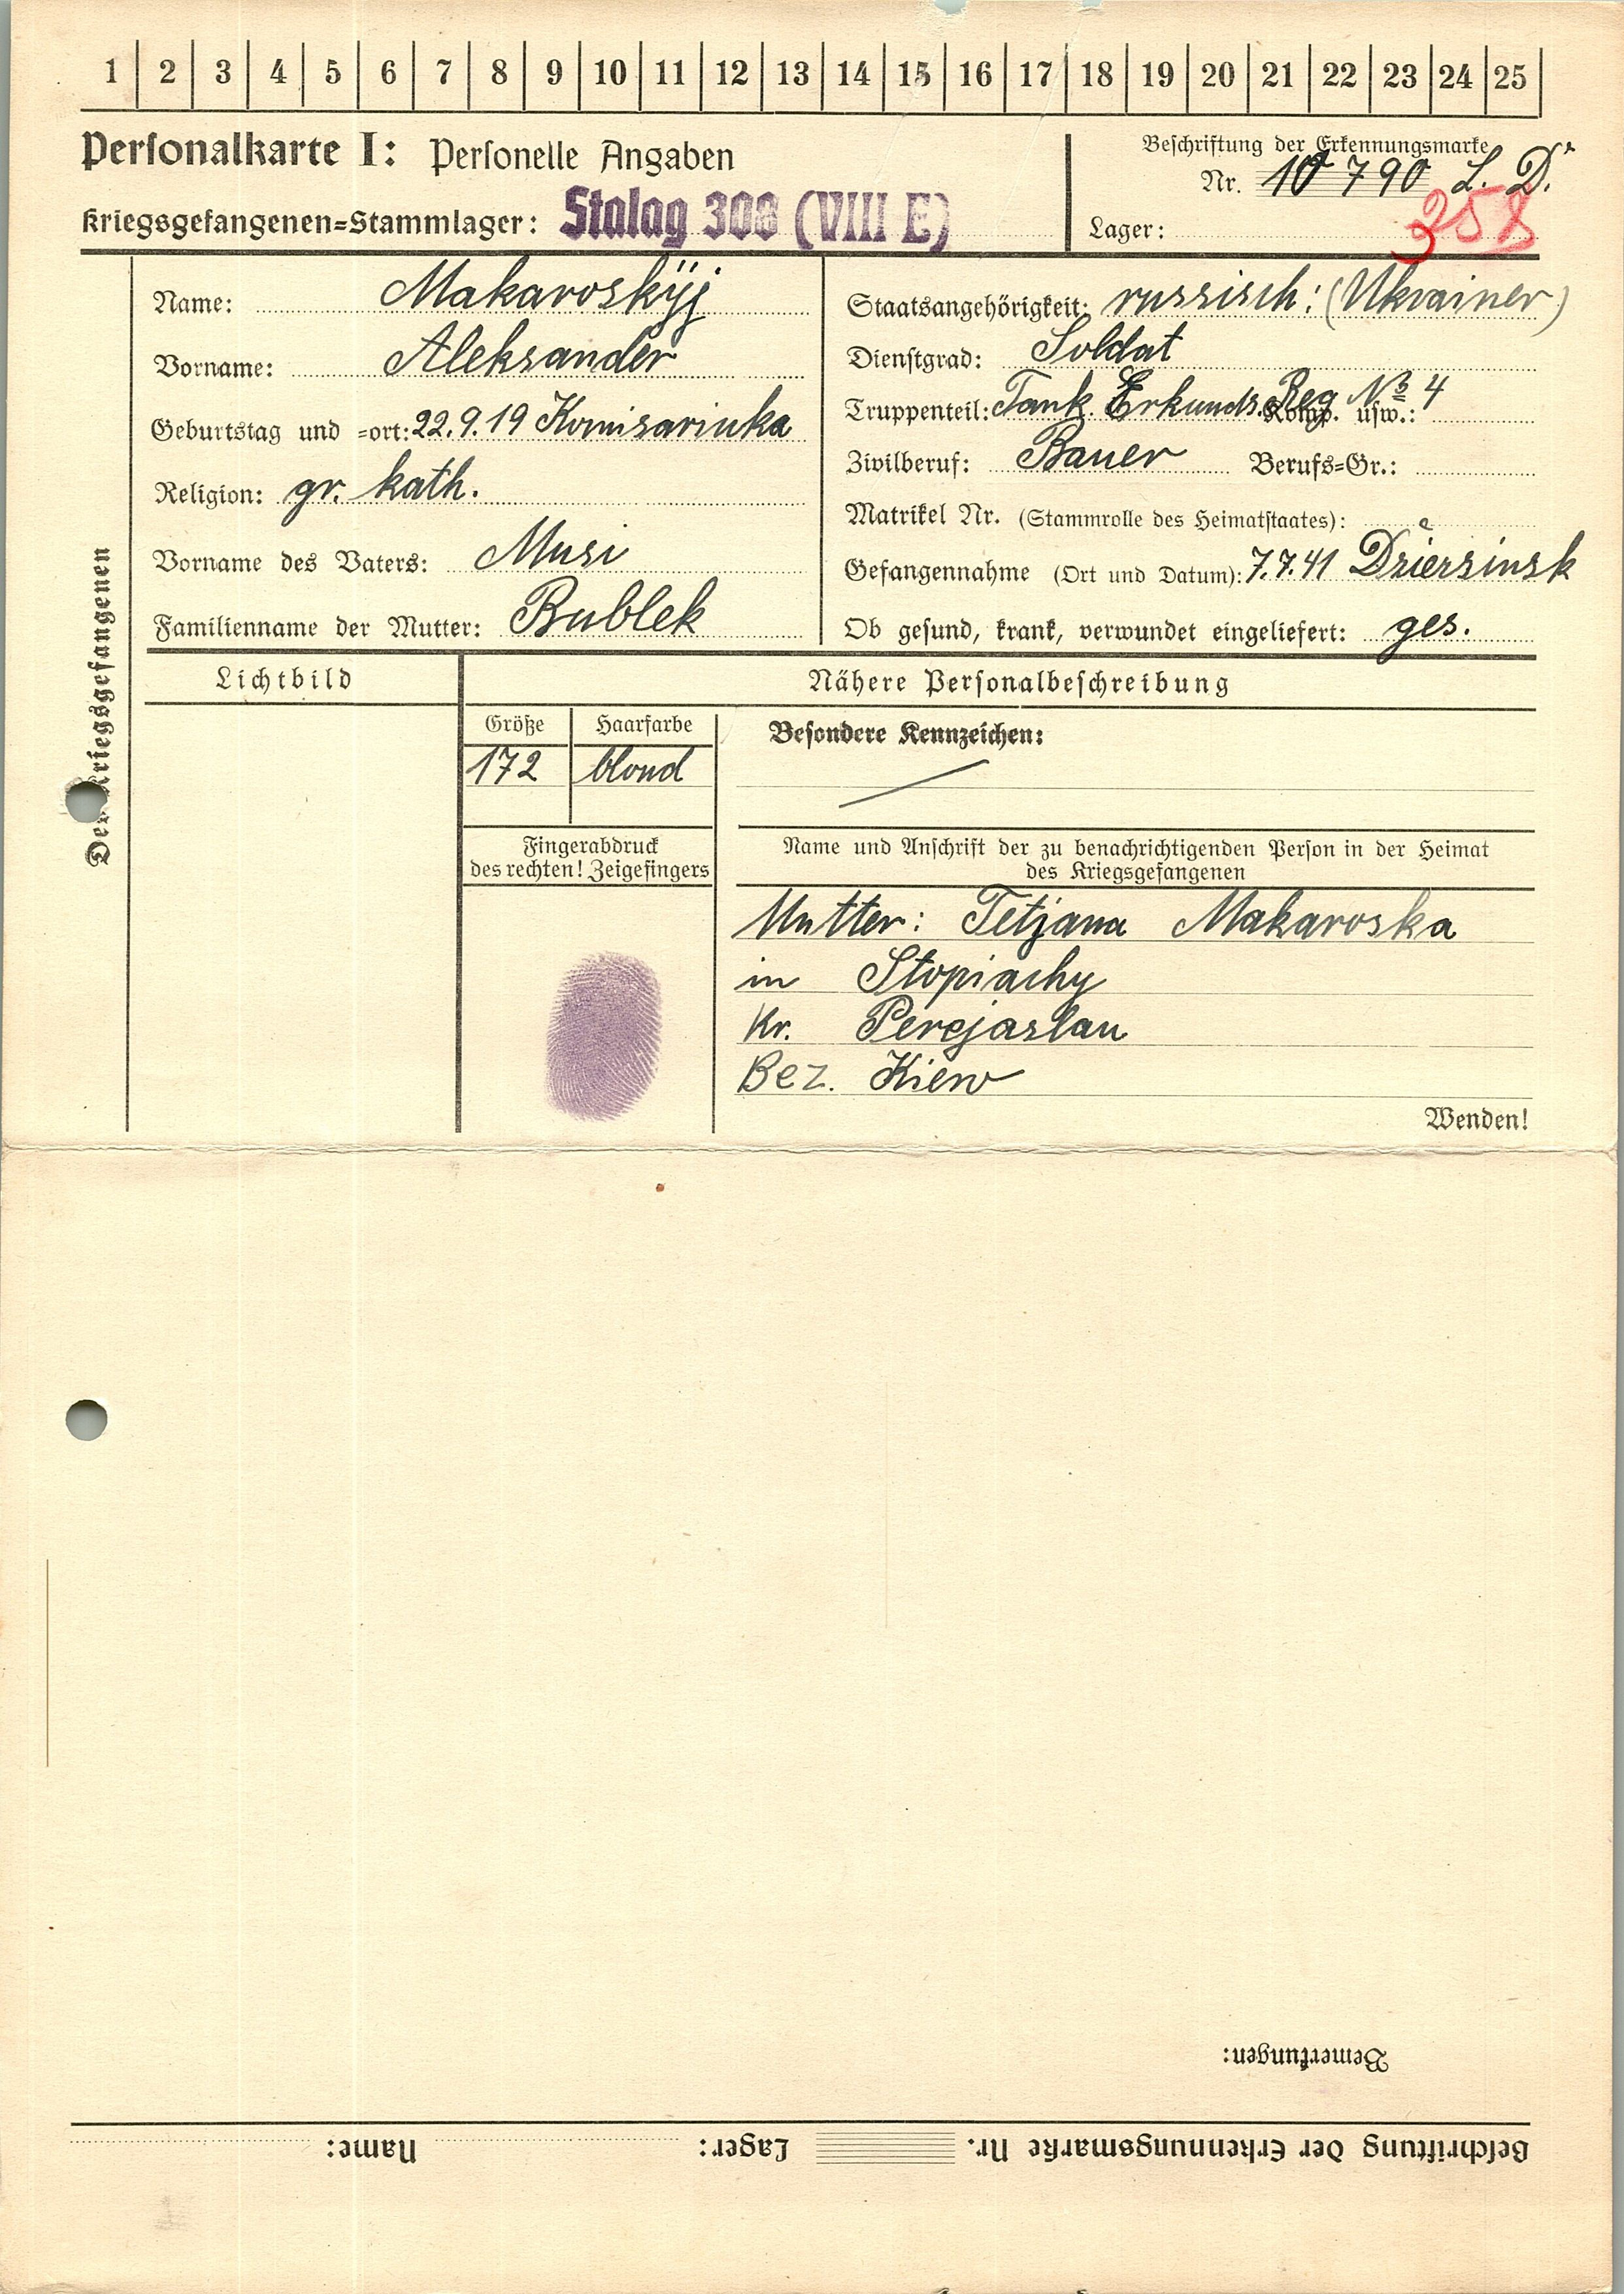 1 2 3 4 5 6 7 8 9 10 11 12 13 14 15 16 17 18 19 20 21 22 23 24 25
Personalkarte I: Personelle Angaben
Kriegsgefangenen=Stammlager: Stalag 308 (VIII E)
Beschriftung der Erkennungsmarke
Nr. 10790 L. Dr.
Lager: 358
Des Kriegsgefangenen
Name: Makaroskÿj
Vorname: Aleksander
Geburtstag und =ort: 22.9.19 Komisariuka
Religion: gr. kath.
Vorname des Vaters: Musi
Familienname der Mutter: Bublek
Staatsangehörigkeit: russisch: (Ukrainer)
Dienstgrad: Soldat
Truppenteil: Tank Erkunds. Reg № 4 Komp. usw.:
Zivilberuf: Bauer Berufs=Gr.:
Matrikel Nr. (Stammrolle des Heimatstaates):
Gefangennahme (Ort und Datum): 7.7.41 Dziersinsk
Ob gesund, krank, verwundet eingeliefert: ges.
Lichtbild
Nähere Personalbeschreibung
Größe Haarfarbe
172 blond
Besondere Kennzeichen:
Fingerabdruck
des rechten! Zeigefingers
Name und Anschrift der zu benachrichtigenden Person in der Heimat
des Kriegsgefangenen
Mutter: Tetjana Makaroska
in Stopiachy
Kr. Perejaslau
Bez. Kiew
Wenden!
Bemerkungen:
Beschriftung der Erkennungsmarke Nr. Lager: Name: